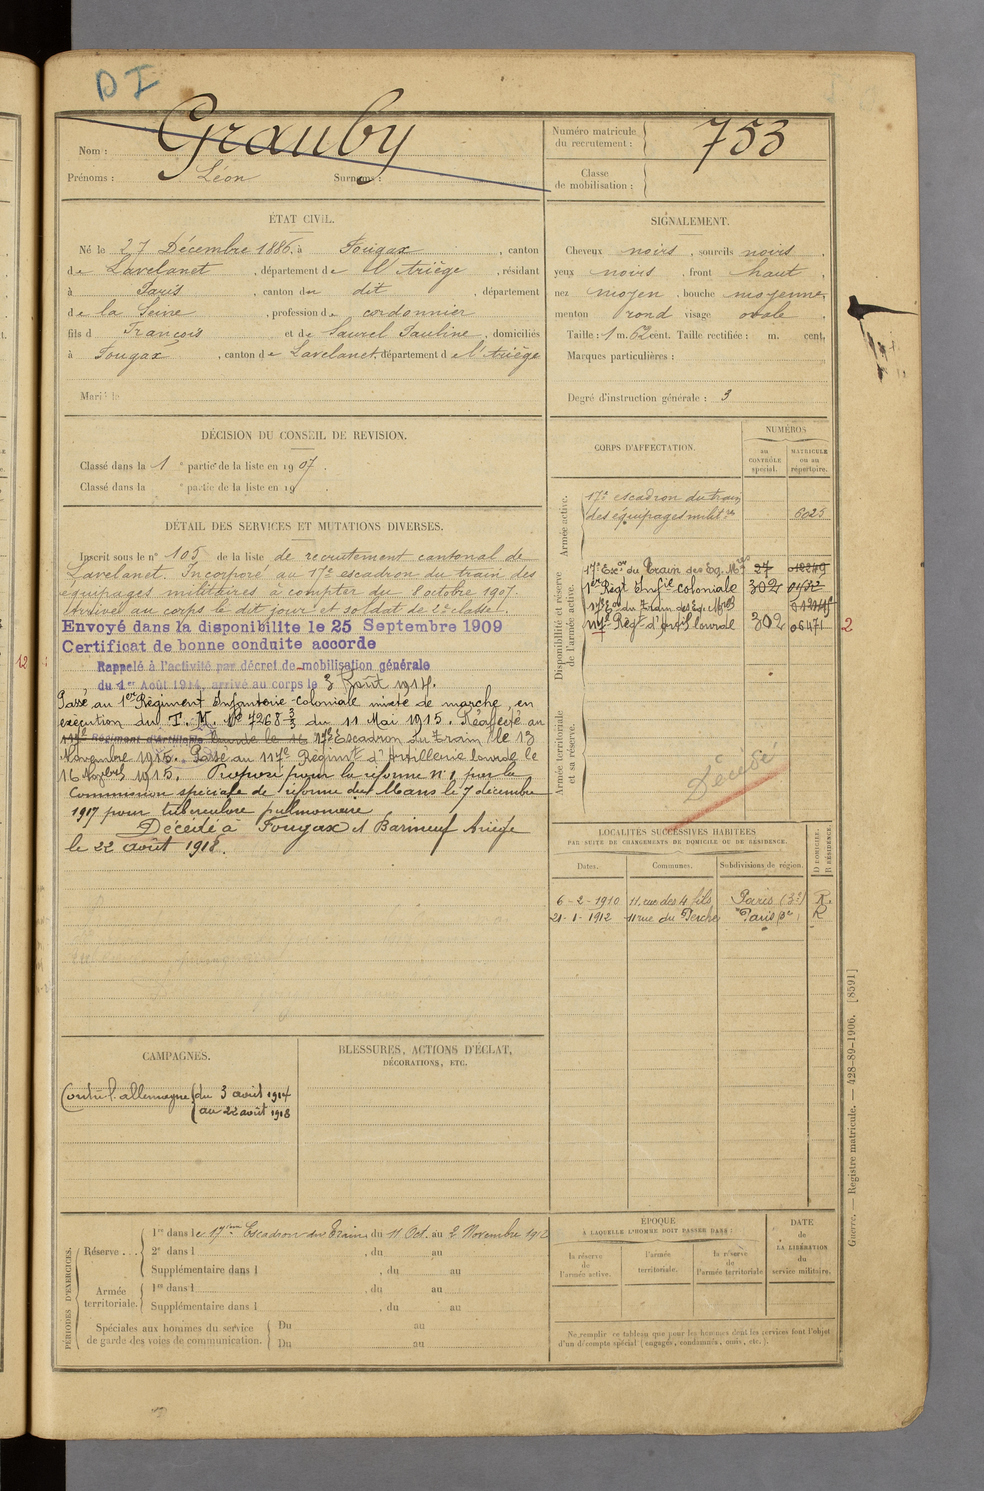 D I
Nom : Grauby
Prénoms : Léon Surnoms :
Numéro matricule du recrutement : 753
Classe de mobilisation :
ÉTAT CIVIL.
Né le 27 Décembre 1886, à Fougax, canton
de Lavelanet, département de l'Ariège, résidant
à Paris, canton du dit, département
de la Seine, profession de cordonnier
fils d François et de Saurel Pauline, domiciliés
à Fougax, canton de Lavelanet département de l'Ariège
Marié le
SIGNALEMENT.
Cheveux noirs, sourcils noirs,
yeux noirs, front haut,
nez moyen, bouche moyenne,
menton rond visage ovale,
Taille : 1 m. 62 cent. Taille rectifiée : m. cent,
Marques particulières :
Degré d'instruction générale : 3
DÉCISION DU CONSEIL DE REVISION.
Classé dans la 1e partie de la liste en 1907.
Classé dans la e partie de la liste en 19
DÉTAIL DES SERVICES ET MUTATIONS DIVERSES.
Inscrit sous le n° 105 de la liste de recrutement cantonal de
Lavelanet. Incorporé au 17e escadron du train des
équipages militaires à compter du 8 octobre 1907.
Arrivé au corps le dit jour et soldat de 2e classe.
Envoyé dans la disponibilité le 25 Septembre 1909
Certificat de bonne conduite accordé
Rappelé à l'activité par décret de mobilisation générale
du 1er Août 1914, arrivé au corps le 3 Août 1914.
Passé au 1er Régiment Infanterie coloniale mixte de marche, en
exécution du T. M. No 7268 3/3 du 11 Mai 1915. Réaffecté au
117e Régiment d'Artillerie lourde le 16 17e Escadron du Train le 13
Novembre 1915. Passé au 117e Régiment d'Artillerie lourde le
16 Novbre 1915. Proposé pour la réforme n°1 par la
Commission spéciale de réforme du Mans le 7 décembre
1917 pour tuberculose pulmonaire
Décédé à Fougax et Barrineuf Ariège
le 22 août 1918.
CORPS D'AFFECTATION.
NUMÉROS
au CONTRÔLE spécial.
MATRICULE ou au répertoire.
Armée active.
17e escadron du train
des équipages militres 6025
Disponibilité et réserve de l'armée active.
17e Escon du Train des Eq. Mres 27
1er Régt Infie coloniale 302
17e Eon du Train des Eq. Mres
117e Régt d'artil lourde 302 06471
2
Armée territoriale et sa réserve.
Décédé
LOCALITÉS SUCCESSIVES HABITÉES
PAR SUITE DE CHANGEMENTS DE DOMICILE OU DE RÉSIDENCE.
Dates. Communes. Subdivisions de région. D DOMICILE. R RÉSIDENCE.
6-2-1910 11, rue des 4 fils Paris (3e) R.
21-1-1912 11 rue du Perche Paris 3e R
CAMPAGNES.
Contre l'allemagne du 3 août 1914
au 22 août 1918
BLESSURES, ACTIONS D'ÉCLAT,
DÉCORATIONS, ETC.
PÉRIODES D'EXERCICES.
Réserve . . .
1re dans le 17ème Escadron du Train, du 11 Oct. au 2 Novembre 191
2e dans l , du au
Supplémentaire dans l , du au
Armée territoriale.
1re dans l , du au
Supplémentaire dans l , du au
Spéciales aux hommes du service de garde des voies de communication.
Du au
Du au
ÉPOQUE
À LAQUELLE L'HOMME DOIT PASSER DANS :
la réserve de l'armée active.
l'armée territoriale.
la réserve de l'armée territoriale
DATE de LA LIBÉRATION du service militaire.
Ne remplir ce tableau que pour les hommes dont les services font l'objet
d'un décompte spécial (engagés, condamnés, omis, etc.).
Guerre. — Registre matricule. — 428-89-1906. [8591]
12